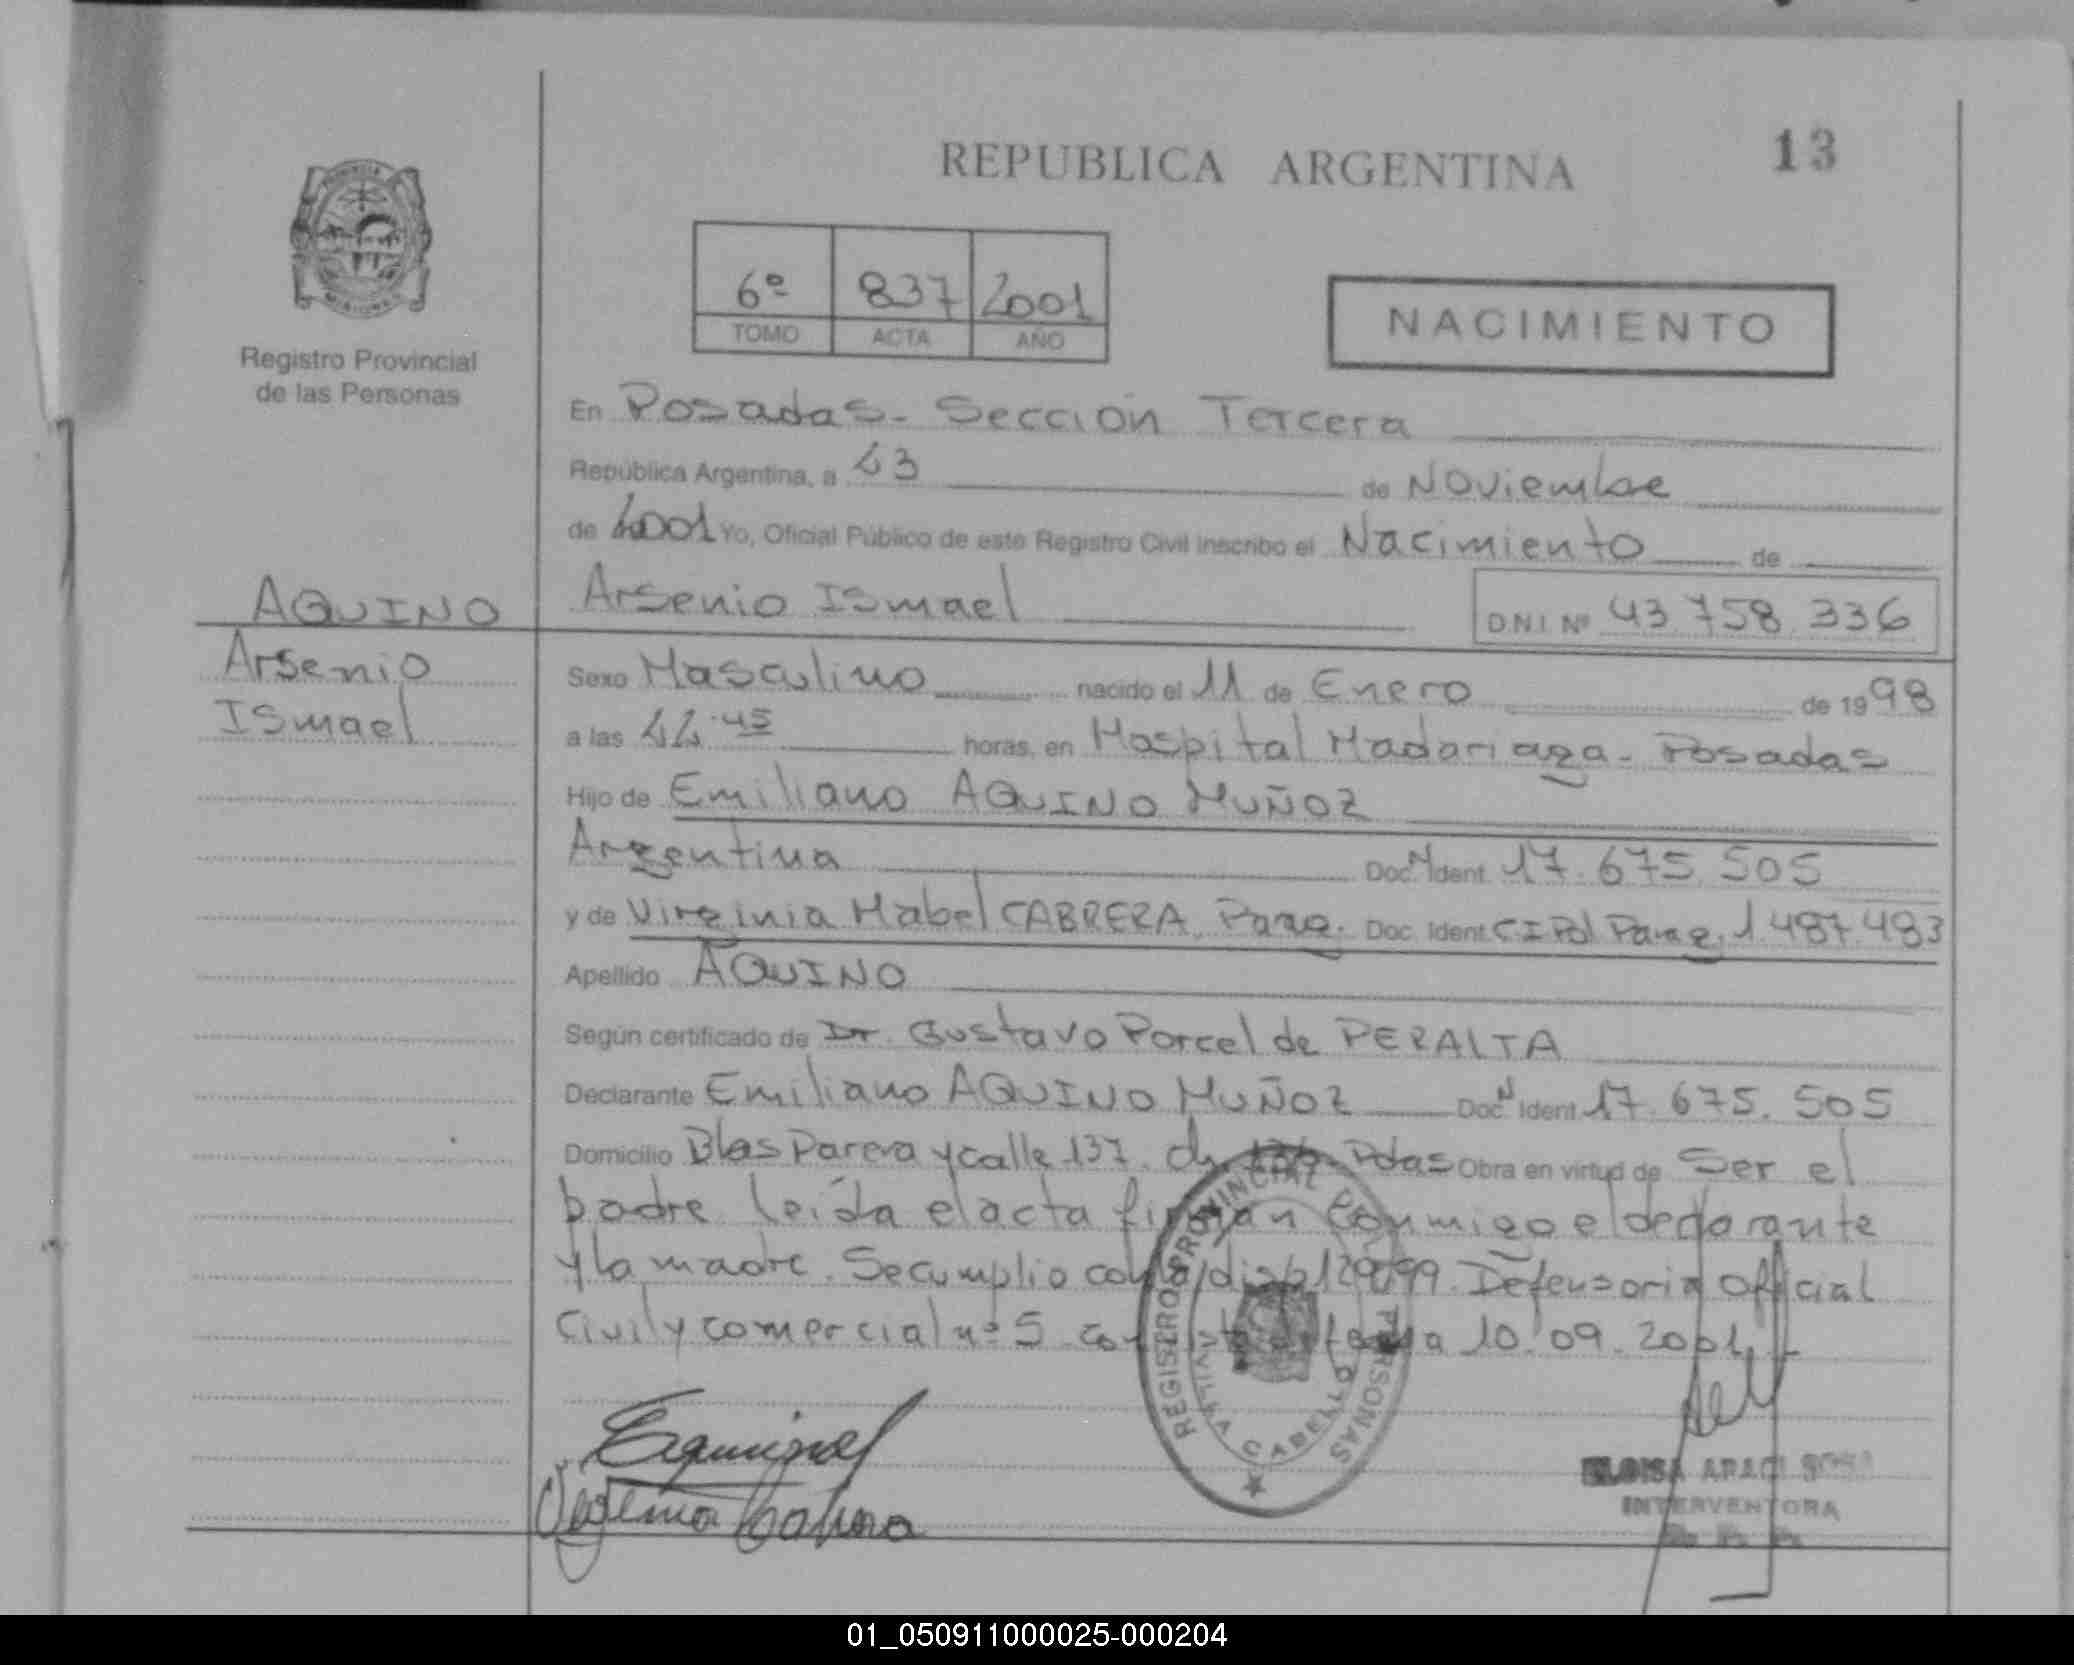 REPUBLICA ARGENTINA
13
Registro Provincial
de las Personas
6º 837 2001
TOMO ACTA AÑO
NACIMIENTO
En Posadas - Sección Tercera
República Argentina, a 23 de Noviembre
de 2001 Yo, Oficial Público de este Registro Civil inscribo el Nacimiento de
AQUINO
Arsenio Ismael
D.N.I. Nº 43.758.336
Arsenio
Ismael
Sexo Masculino nacido el 11 de Enero de 1998
a las 22.45 horas, en Hospital Madariaga - Posadas
Hijo de Emiliano AQUINO MUÑOZ
Argentina Doc. N Ident. 17.675.505
y de Virginia Mabel CABRERA, Parag. Doc. Ident. CI Pol Parag. 1.487.483
Apellido AQUINO
Según certificado de Dr. Gustavo Porcel de PERALTA
Declarante Emiliano AQUINO MUÑOZ Doc. N Ident. 17.675.505
Domicilio Blas Parera y calle 137. Pdas Obra en virtud de Ser el
padre leída el acta firman conmigo el declarante
y la madre. Se cumplio con la disp 129/99. Defensoria Oficial
Civil y comercial nº 5 10.09.2001.
REGISTRO PROVINCIAL DE PERSONAS
VILLA CABELLO
Virginia Cabrera
ELOISA ARACI SOSA
INTERVENTORA
01_050911000025-000204